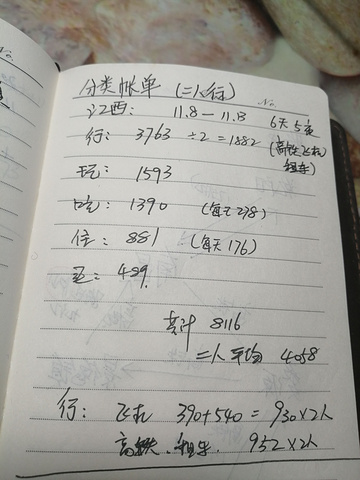 No.
分类帐单 (二人行)
江西: 11.8—11.13 6天5夜
行: 3763 ÷2=1882 (高铁飞机租车)
玩: 1593
吃: 1390 (每天278)
住: 881 (每天176)
489
共计 8116
二人平均 4058
行: 飞机 390+540=930×2人
高铁、租车 952×2人